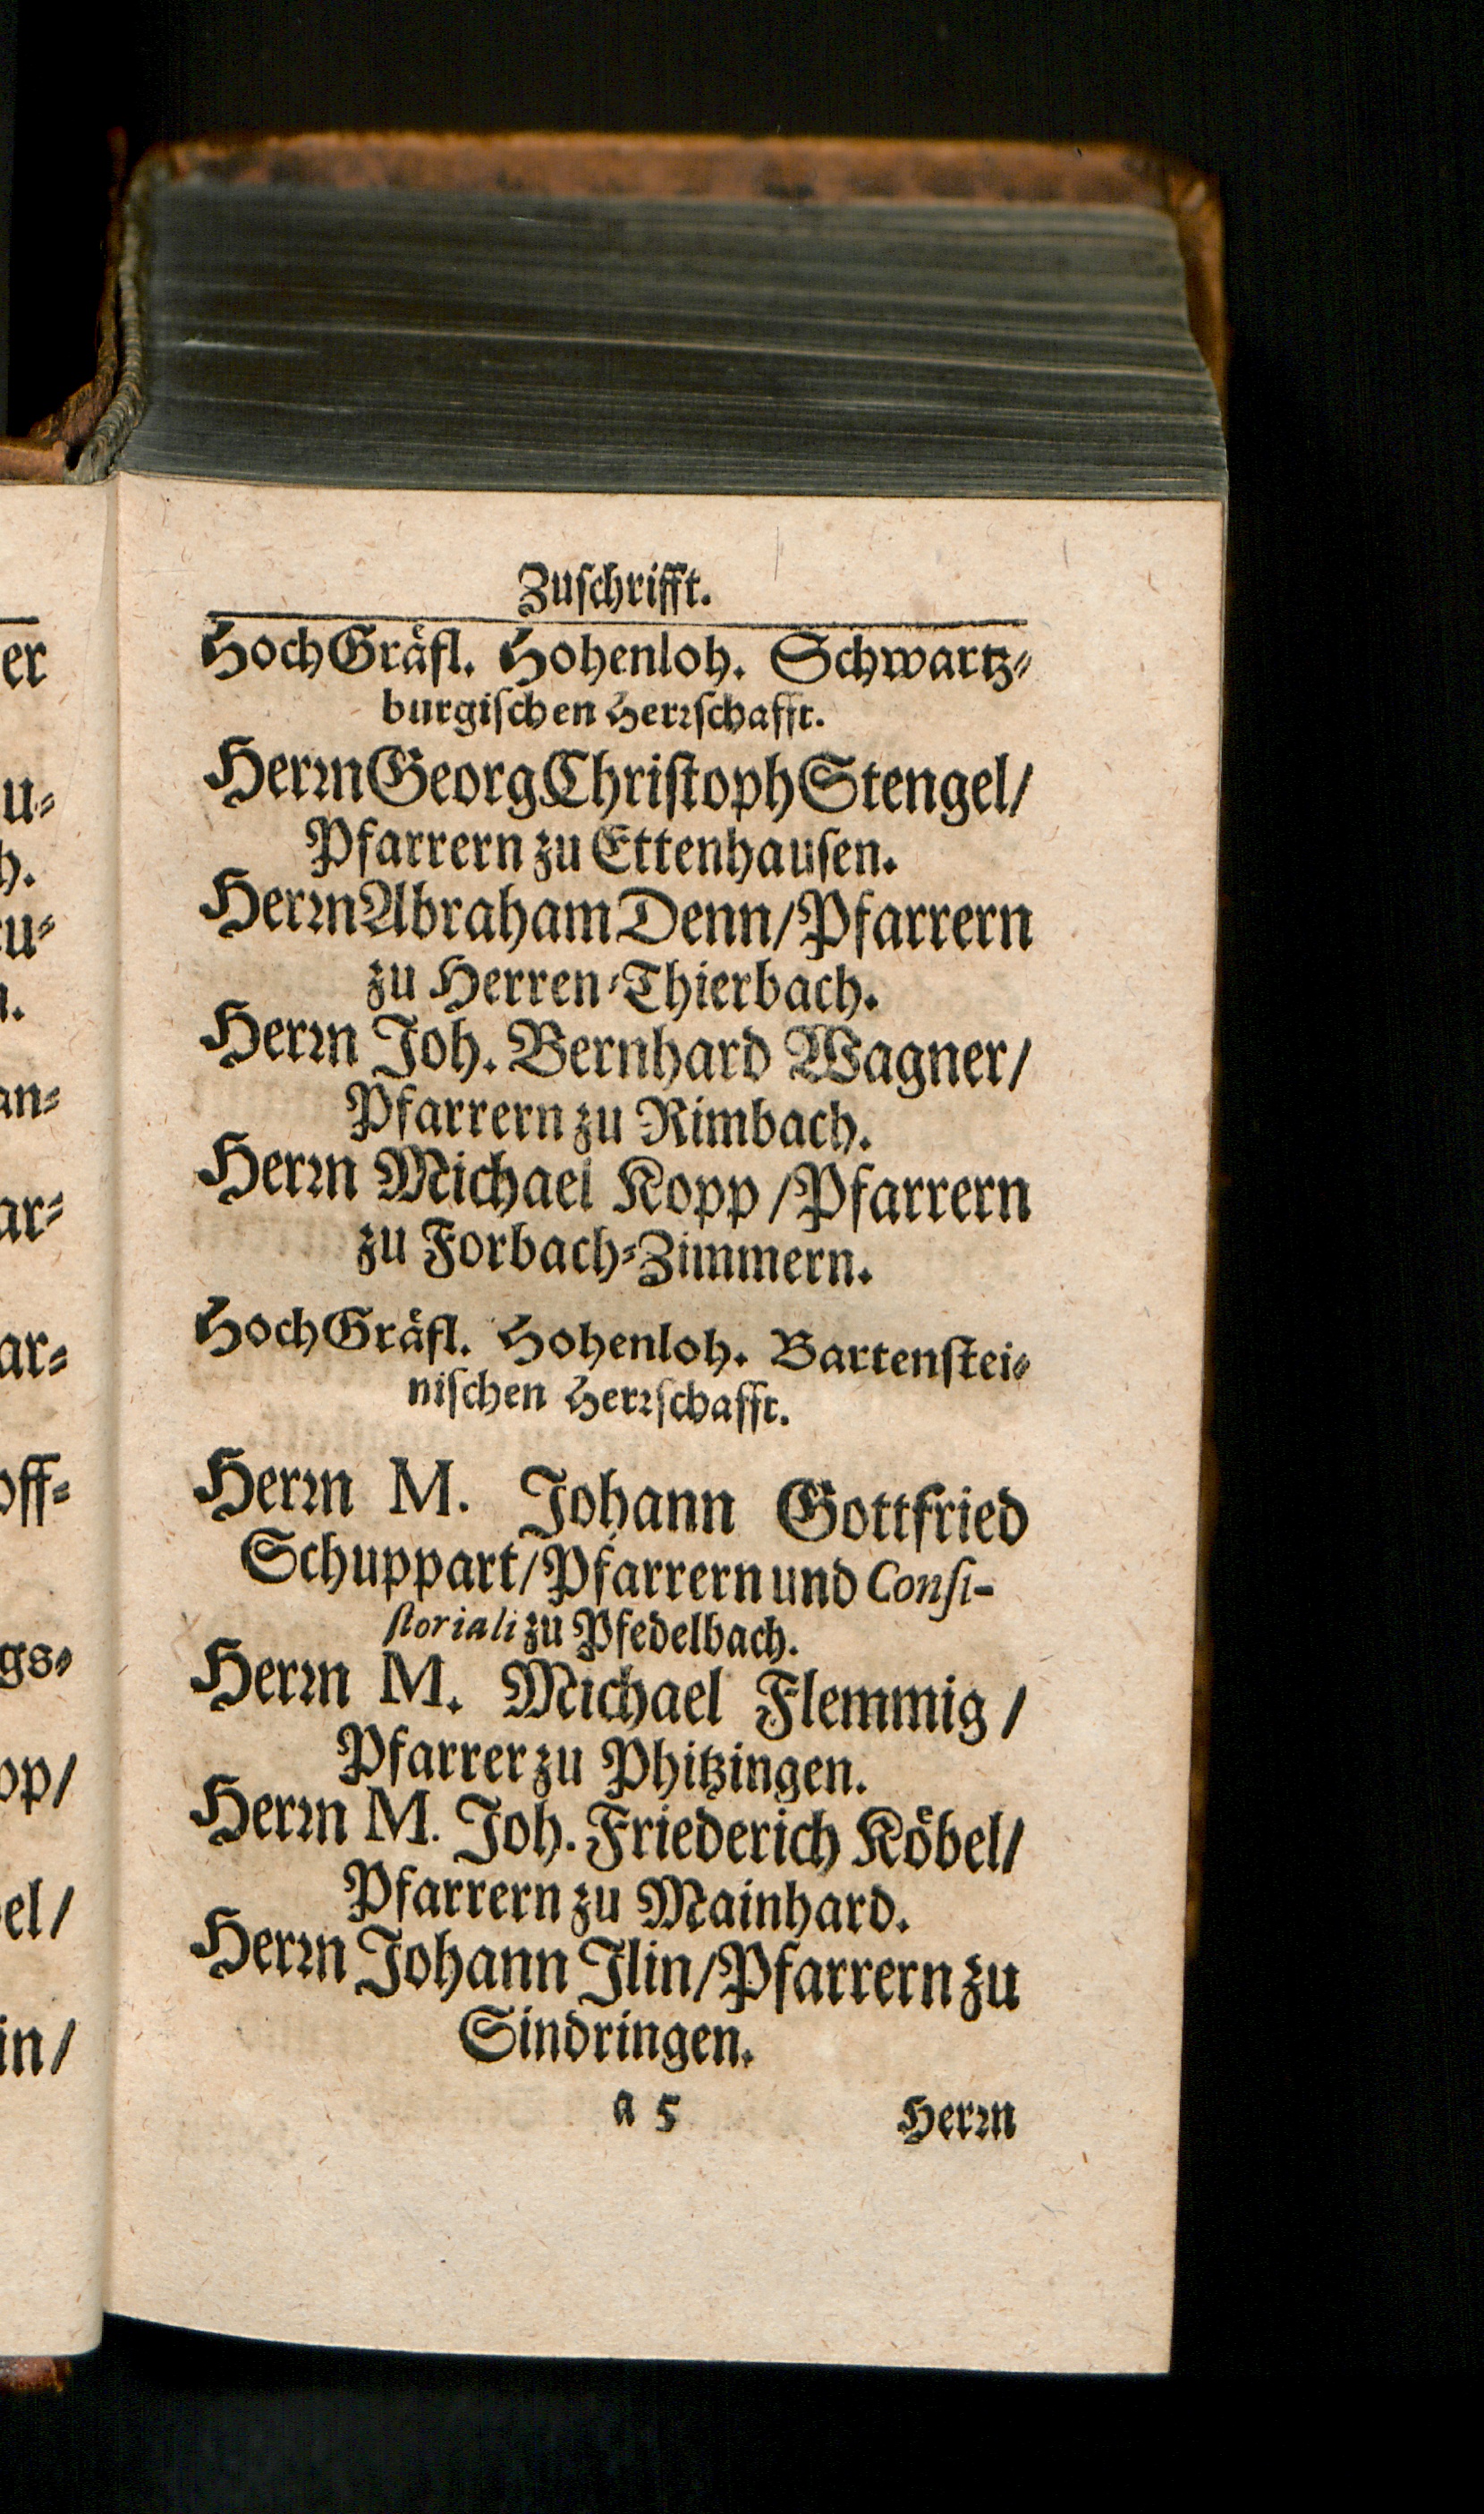 Zuſchrifft.
HochGräfl. Hohenloh. Schwartz⸗
burgiſchen Herꝛſchafft.
Herꝛn Georg Chriſtoph Stengel/
Pfarrern zu Ettenhauſen.
Herꝛn Abraham Denn/Pfarrern
zu Herren⸗Thierbach.
Herꝛn Joh. Bernhard Wagner/
Pfarrern zu Rimbach.
Herꝛn Michael Kopp/Pfarrern
zu Forbach⸗Zimmern.
HochGräfl. Hohenloh. Bartenſtei⸗
niſchen Herꝛſchafft.
Herꝛn M. Johann Gottfried
Schuppart/Pfarrern und Conſi-
ſtoriali zu Pfedelbach.
Herꝛn M. Michael Flemmig/
Pfarrer zu Phitzingen.
Herꝛn M. Joh. Friederich Köbel/
Pfarrern zu Mainhard.
Herꝛn Johann Jlin/Pfarrern zu
Sindringen.
a 5 Herꝛn